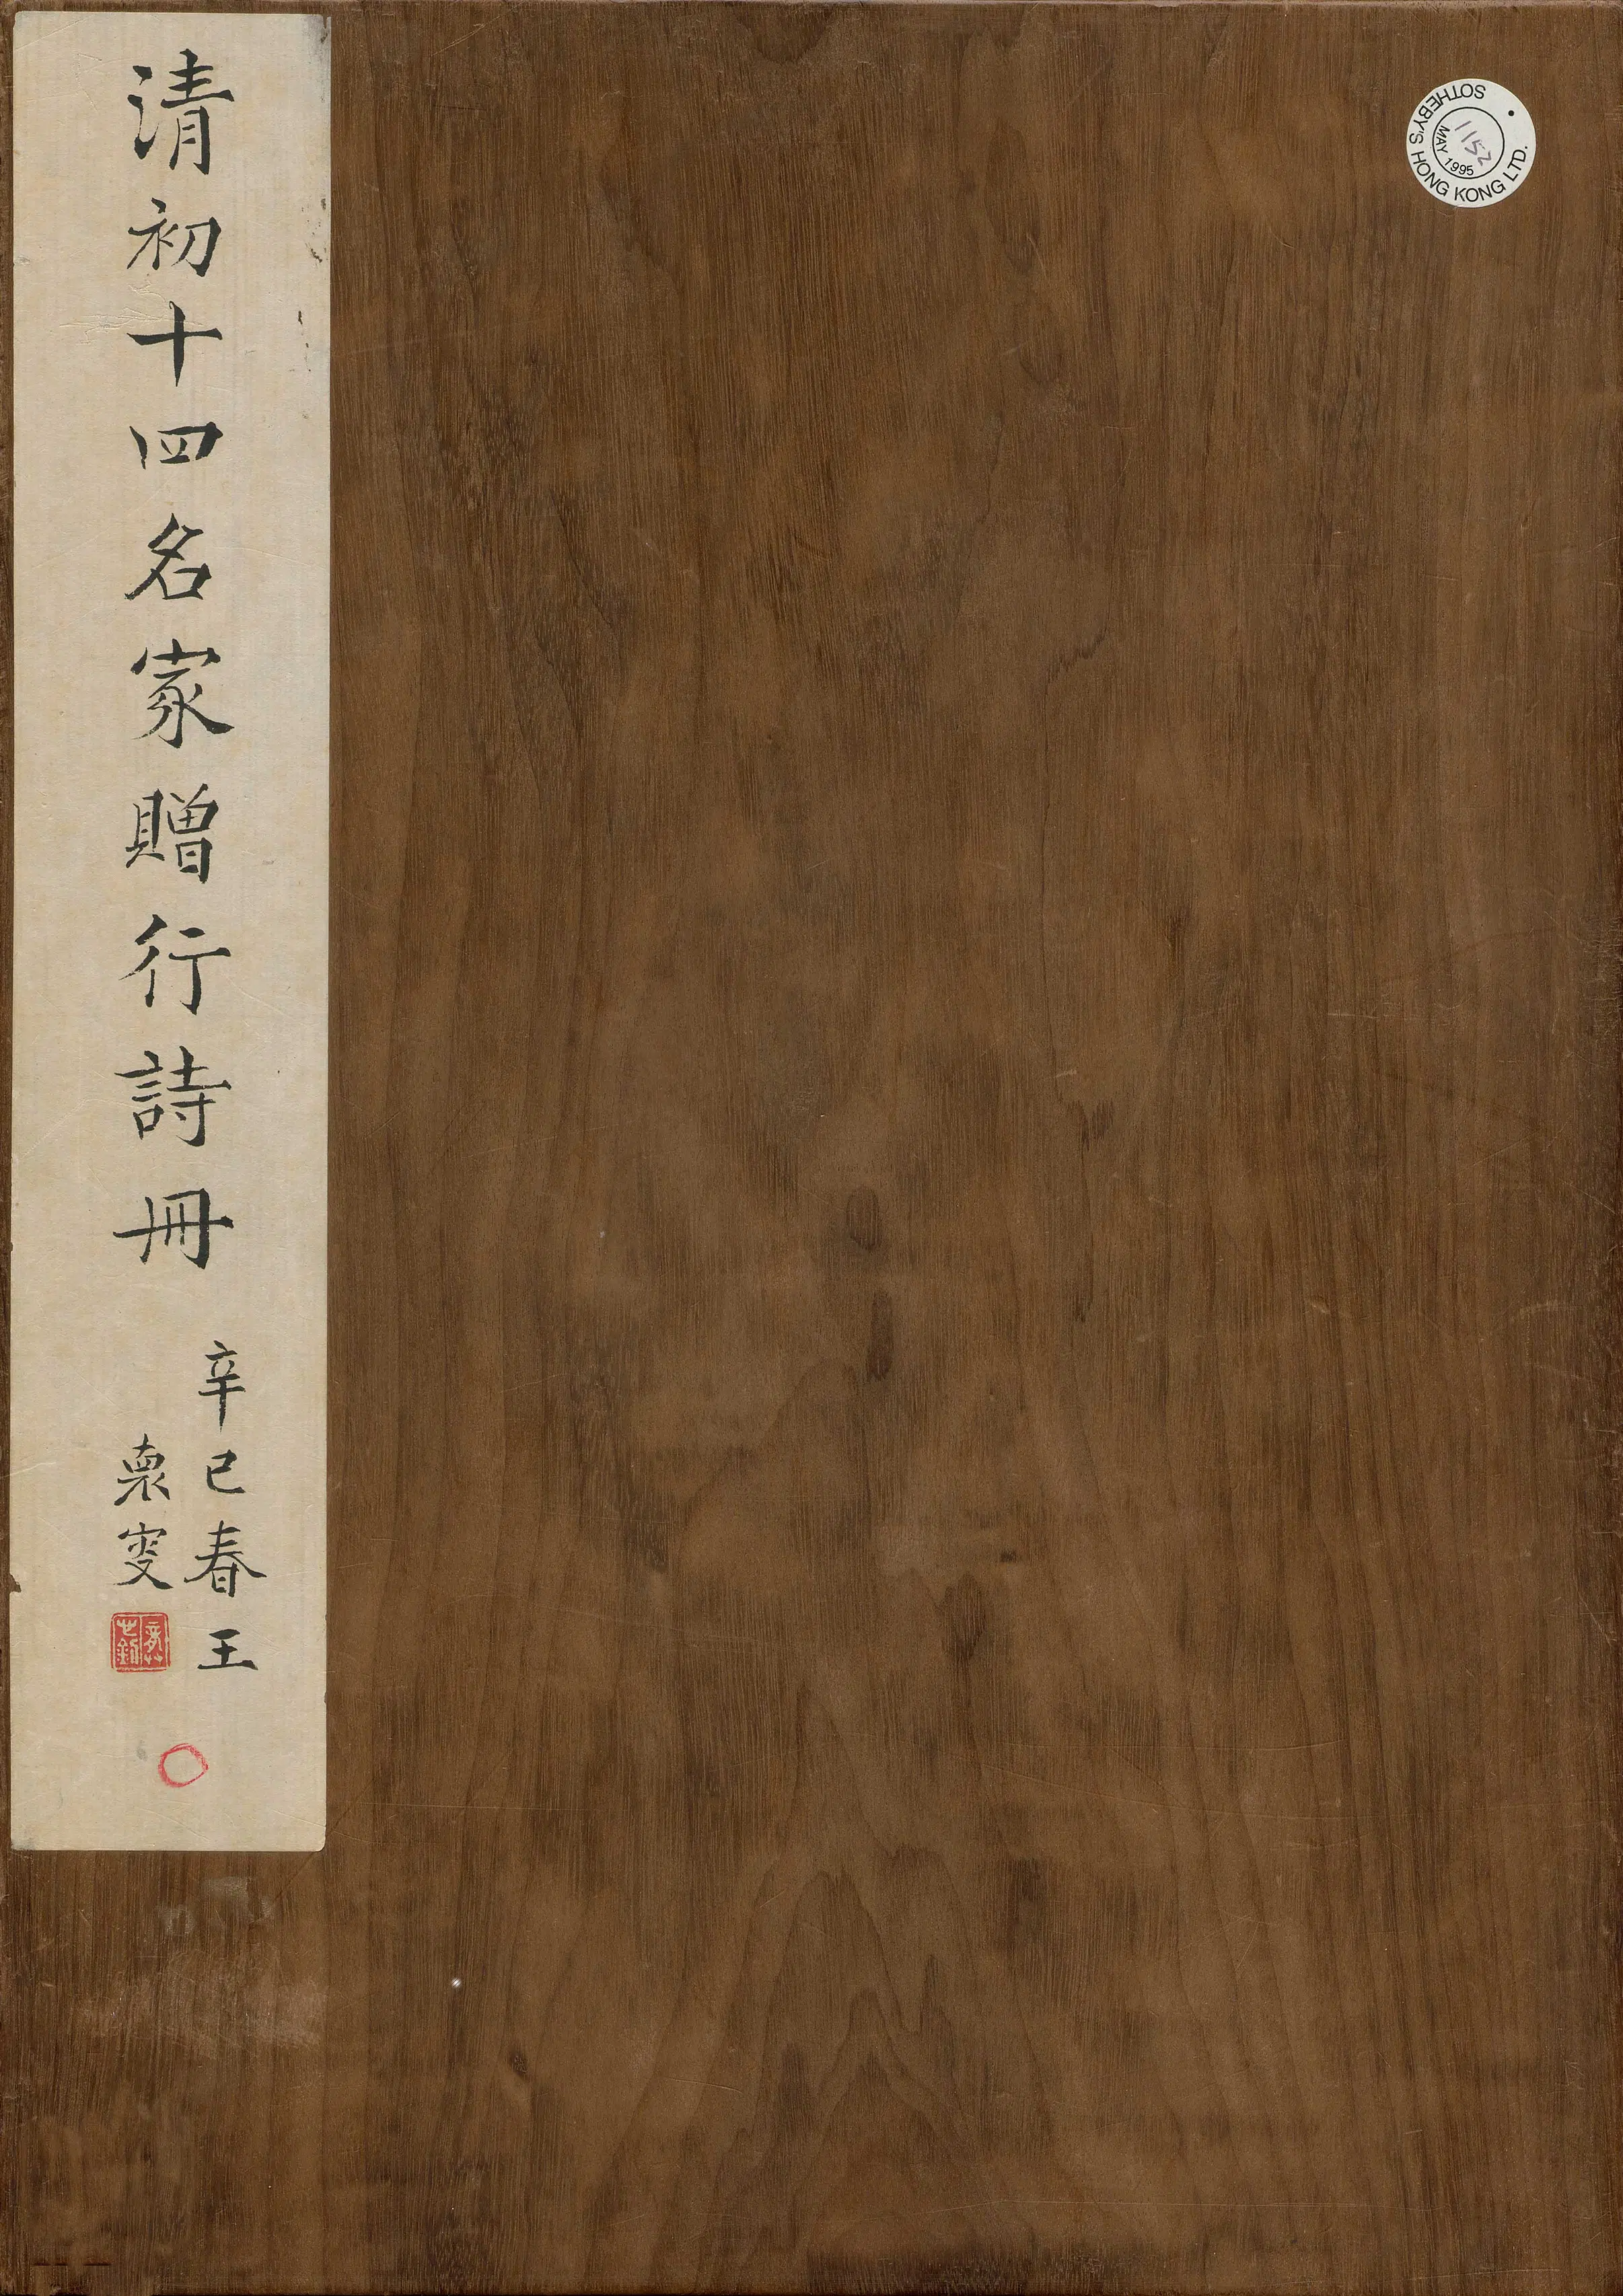 清初十四名家贈行詩冊
辛巳春王
褱㝬
SOTHEBY'S HONG KONG LTD.
MAY 1995
1152